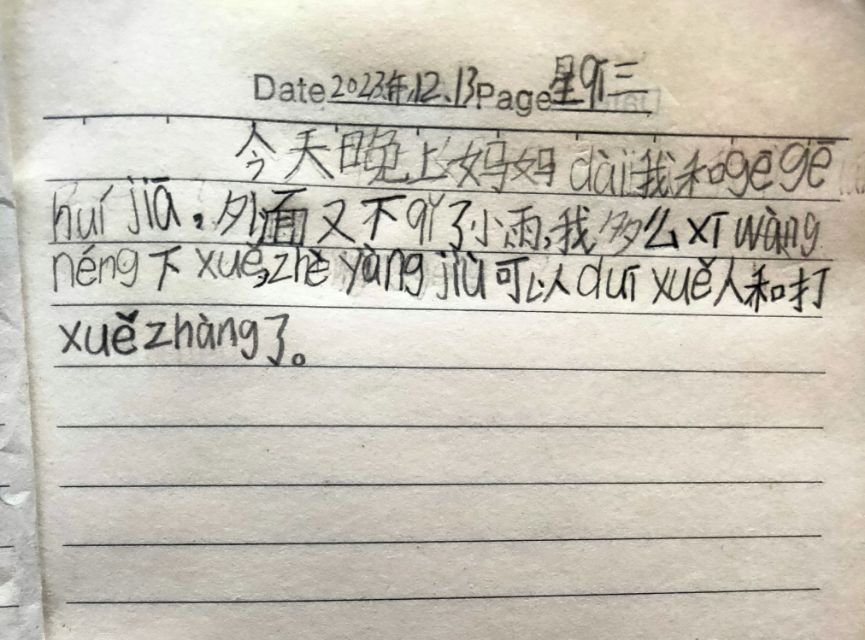 Date 2023年.12.13 Page 星qī三
今天晚上妈妈dài我和gēgē
huí jiā，外面又下qǐ了小雨，我多么xī wàng
néng下xuě，zhè yàng jiù可以duī xuě人和打
xuě zhàng了。